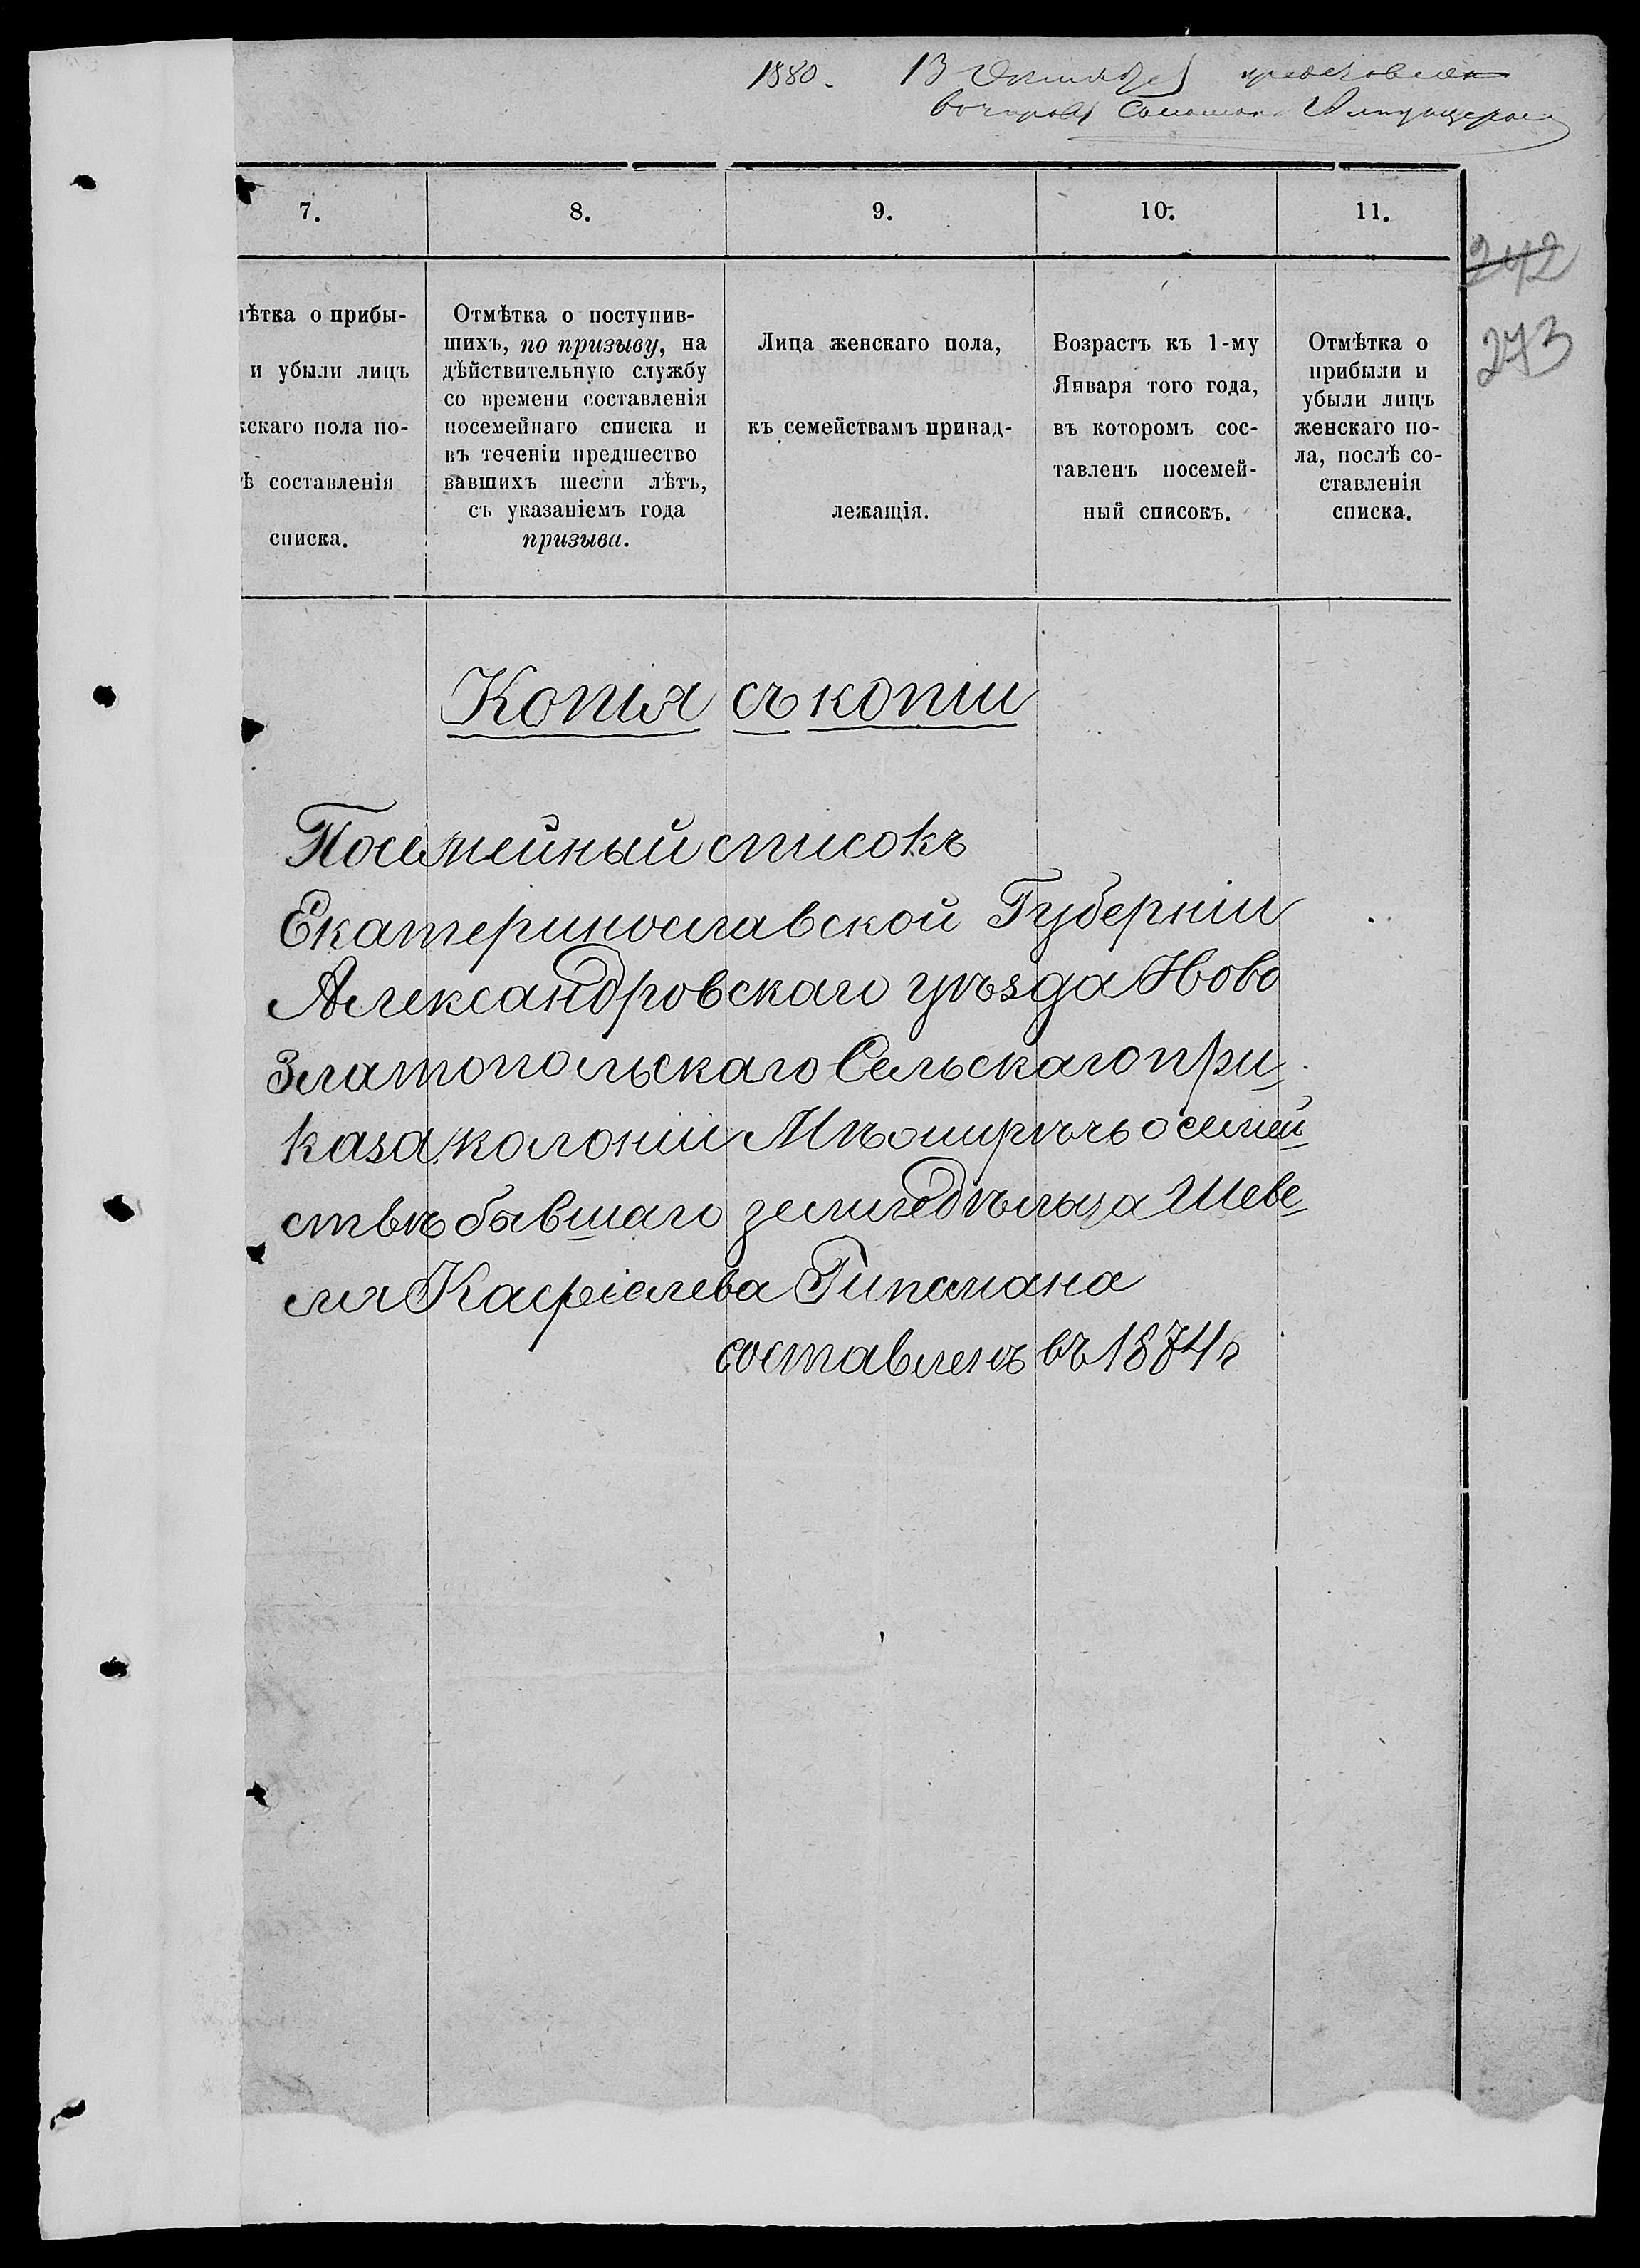 1880. 13 Октября
242
273
7. 8. 9. 10. 11.
мѣтка о прибы-
и убыли лицъ
жскаго пола по-
ѣ составленія
списка.
Отмѣтка о поступив-
шихъ, по призыву, на
дѣйствительную службу
со времени составленія
посемейнаго списка и
въ теченіи предшество
вавшихъ шести лѣтъ,
съ указаніемъ года
призыва.
Лица женскаго пола,
къ семействамъ принад-
лежащія.
Возрастъ къ 1-му
Января того года,
въ которомъ сос-
тавленъ посемей-
ный списокъ.
Отмѣтка о
прибыли и
убыли лицъ
женскаго по-
ла, послѣ со-
ставленія
списка.
Копія съ копіи
Посемейный списокъ
Екатеринославской Губерніи
Александровскаго уѣзда Ново
Златопольскаго Сельскаго при-
каза, колоніи о семей-
ствѣ бывшаго земледѣльца Шеве-
ля Касріелева Гипсмана
составленъ въ 1874 г